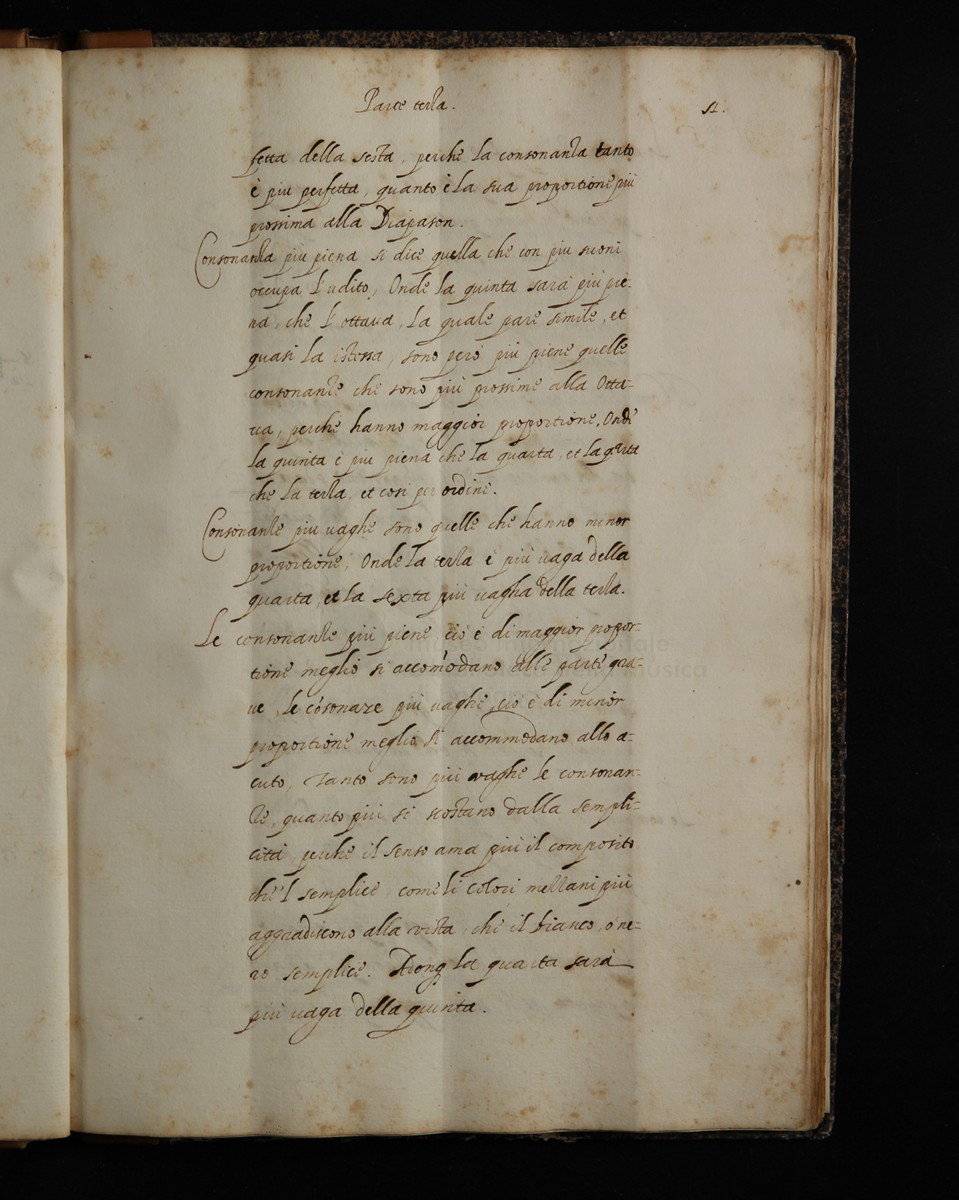 Parte terza. 51.
fetta della sesta, perche la consonanza tanto
è piu perfetta, quanto è la sua proportione più
prossima alla Diapason.
Consonanza più piena si dice quella che con piu suoni
occupa l'udito, Onde la quinta sarà più pie-
na, che l'ottava, la quale pare simile, et
quasi la istessa, sono però più piene quelle
consonanze che sono più prossime alla Otta-
va, perche hanno maggior proportione, Onde
la quinta è piu piena che la quarta, et la
che la terza, et così per ordine.
Consonanze piu vaghe sono quelle che hanno minor
proportione, Onde la terza è più vaga della
quarta, et la sexta più vagha della terza.
Le consonanze più piene ciò è di maggior propor-
tione meglio si accomodano alle parte gra-
ve, le cōsonāze più vaghe, ciò è di minor
proportione meglio si accommodano allo a-
cuto, Tanto sono più vaghe le consonan-
ze, quanto più si scostano dalla sempli-
cità, perche il senso ama più il composito
che'l semplice, come li colori mezzani più
aggradiscono alla vista, che il bianco, o ne-
ro semplice. Adonq̢ la quarta sarà
più vaga della quinta.